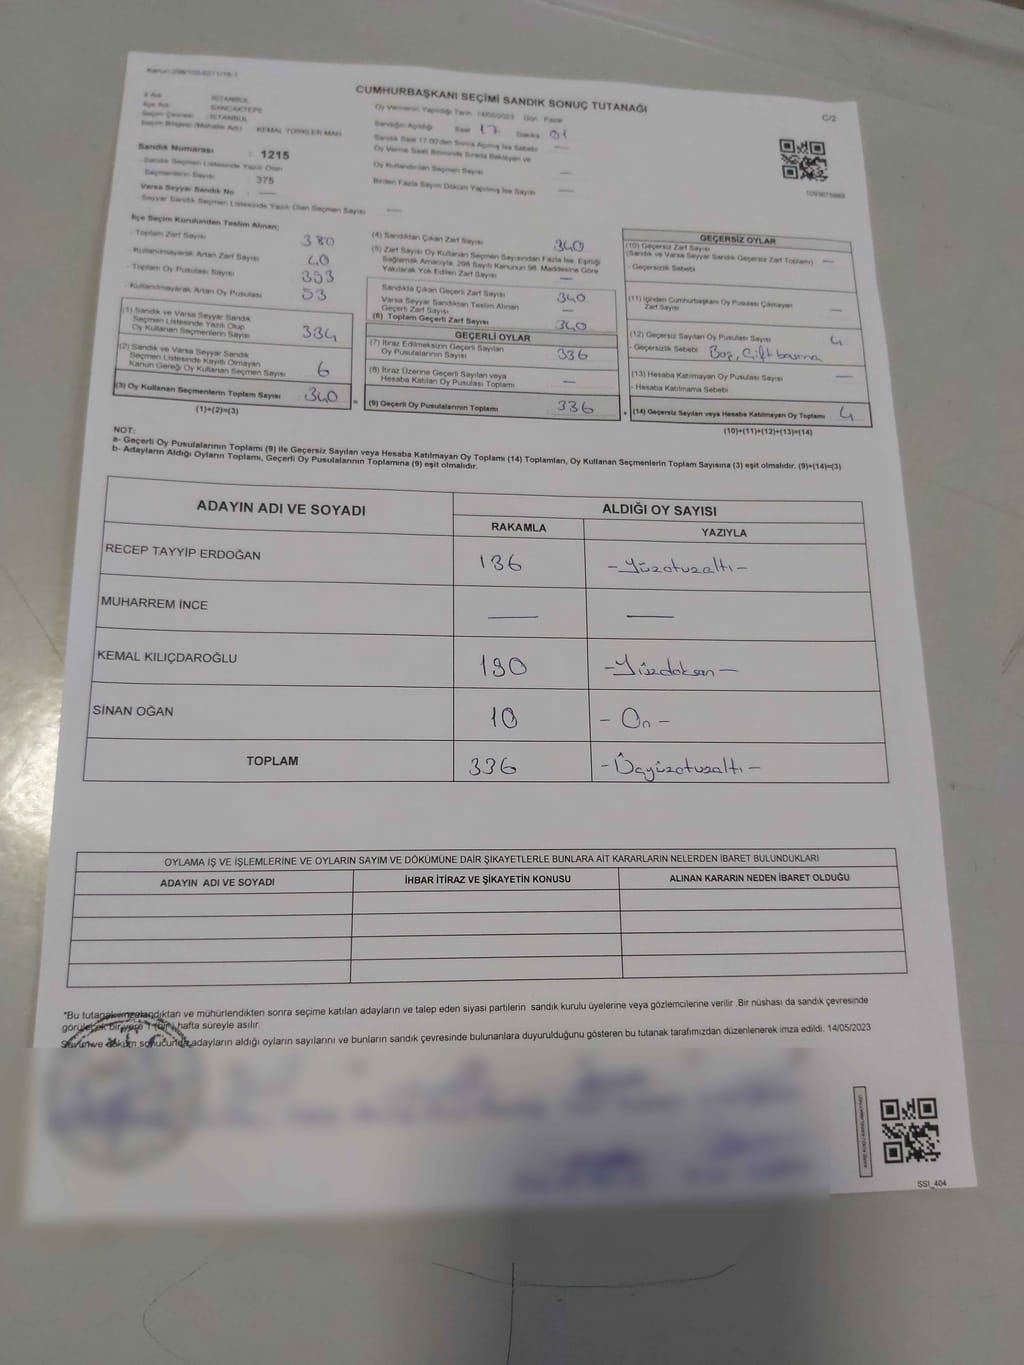 CUMHURBAŞKANI SEÇİMİ SANDIK SONUÇ TUTANAĞI
C/2
İli Adı : İSTANBUL
İlçe Adı : SANCAKTEPE
Seçim Çevresi : İSTANBUL
Seçim Bölgesi (Mahalle Adı) : KEMAL TÜRKLER MAH.
Oy Vermenin Yapıldığı Tarih 14/05/2023 Gün Pazar
Sandığın Açıldığı Saat 17 Dakika 01
Sandık Saat 17.00'den Sonra Açılmış İse Sebebi —
Oy Verme Saati Bitiminde Sırada Bekleyen ve
Oy Kullandırılan Seçmen Sayısı —
Birden Fazla Sayım Döküm Yapılmış İse Sayısı —
Sandık Numarası : 1215
- Sandık Seçmen Listesinde Yazılı Olan
Seçmenlerin Sayısı : 375
Varsa Seyyar Sandık No : —
- Seyyar Sandık Seçmen Listesinde Yazılı Olan Seçmen Sayısı : —
İlçe Seçim Kurulundan Teslim Alınan;
- Toplam Zarf Sayısı : 380
- Kullanılmayarak Artan Zarf Sayısı : 40
- Toplam Oy Pusulası Sayısı : 393
- Kullanılmayarak Artan Oy Pusulası : 53
(1) Sandık ve Varsa Seyyar Sandık
Seçmen Listesinde Yazılı Olup
Oy Kullanan Seçmenlerin Sayısı : 334
(2) Sandık ve Varsa Seyyar Sandık
Seçmen Listesinde Kayıtlı Olmayan
Kanun Gereği Oy Kullanan Seçmen Sayısı : 6
(3) Oy Kullanan Seçmenlerin Toplam Sayısı : 340
(1)+(2)=(3)
(4) Sandıktan Çıkan Zarf Sayısı : 340
(5) Zarf Sayısı Oy Kullanan Seçmen Sayısından Fazla İse, Eşitliği
Sağlamak Amacıyla, 298 Sayılı Kanunun 98. Maddesine Göre
Yakılarak Yok Edilen Zarf Sayısı : —
Sandıkta Çıkan Geçerli Zarf Sayısı : 340
Varsa Seyyar Sandıktan Teslim Alınan
Geçerli Zarf Sayısı : —
(6) Toplam Geçerli Zarf Sayısı : 340
GEÇERLİ OYLAR
(7) İtiraz Edilmeksizin Geçerli Sayılan
Oy Pusulalarının Sayısı : 336
(8) İtiraz Üzerine Geçerli Sayılan veya
Hesaba Katılan Oy Pusulası Toplamı : —
(9) Geçerli Oy Pusulalarının Toplamı : 336
GEÇERSİZ OYLAR
(10) Geçersiz Zarf Sayısı
(Sandık ve Varsa Seyyar Sandık Geçersiz Zarf Toplamı) : —
- Geçersizlik Sebebi
(11) İçinden Cumhurbaşkanı Oy Pusulası Çıkmayan
Zarf Sayısı : —
(12) Geçersiz Sayılan Oy Pusulası Sayısı : 4
- Geçersizlik Sebebi : Boş, Çift basma
(13) Hesaba Katılmayan Oy Pusulası Sayısı : —
- Hesaba Katılmama Sebebi
(14) Geçersiz Sayılan veya Hesaba Katılmayan Oy Toplamı : 4
(10)+(11)+(12)+(13)=(14)
NOT:
a- Geçerli Oy Pusulalarının Toplamı (9) ile Geçersiz Sayılan veya Hesaba Katılmayan Oy Toplamı (14) Toplamları, Oy Kullanan Seçmenlerin Toplam Sayısına (3) eşit olmalıdır. (9)+(14)=(3)
b- Adayların Aldığı Oyların Toplamı, Geçerli Oy Pusulalarının Toplamına (9) eşit olmalıdır.
ADAYIN ADI VE SOYADI
ALDIĞI OY SAYISI
RAKAMLA YAZIYLA
RECEP TAYYİP ERDOĞAN 136 - Yüzotuzaltı -
MUHARREM İNCE — —
KEMAL KILIÇDAROĞLU 190 - Yüzdoksan -
SİNAN OĞAN 10 - On -
TOPLAM 336 - Üçyüzotuzaltı -
OYLAMA İŞ VE İŞLEMLERİNE VE OYLARIN SAYIM VE DÖKÜMÜNE DAİR ŞİKAYETLERLE BUNLARA AİT KARARLARIN NELERDEN İBARET BULUNDUKLARI
ADAYIN ADI VE SOYADI İHBAR İTİRAZ VE ŞİKAYETİN KONUSU ALINAN KARARIN NEDEN İBARET OLDUĞU
*Bu tutanak imzalandıktan ve mühürlendikten sonra seçime katılan adayların ve talep eden siyasi partilerin sandık kurulu üyelerine veya gözlemcilerine verilir. Bir nüshası da sandık çevresinde
görülecek bir yere 1 (bir) hafta süreyle asılır.
Sayım ve döküm sonucunda adayların aldığı oyların sayılarını ve bunların sandık çevresinde bulunanlara duyurulduğunu gösteren bu tutanak tarafımızdan düzenlenerek imza edildi. 14/05/2023
SSI_404